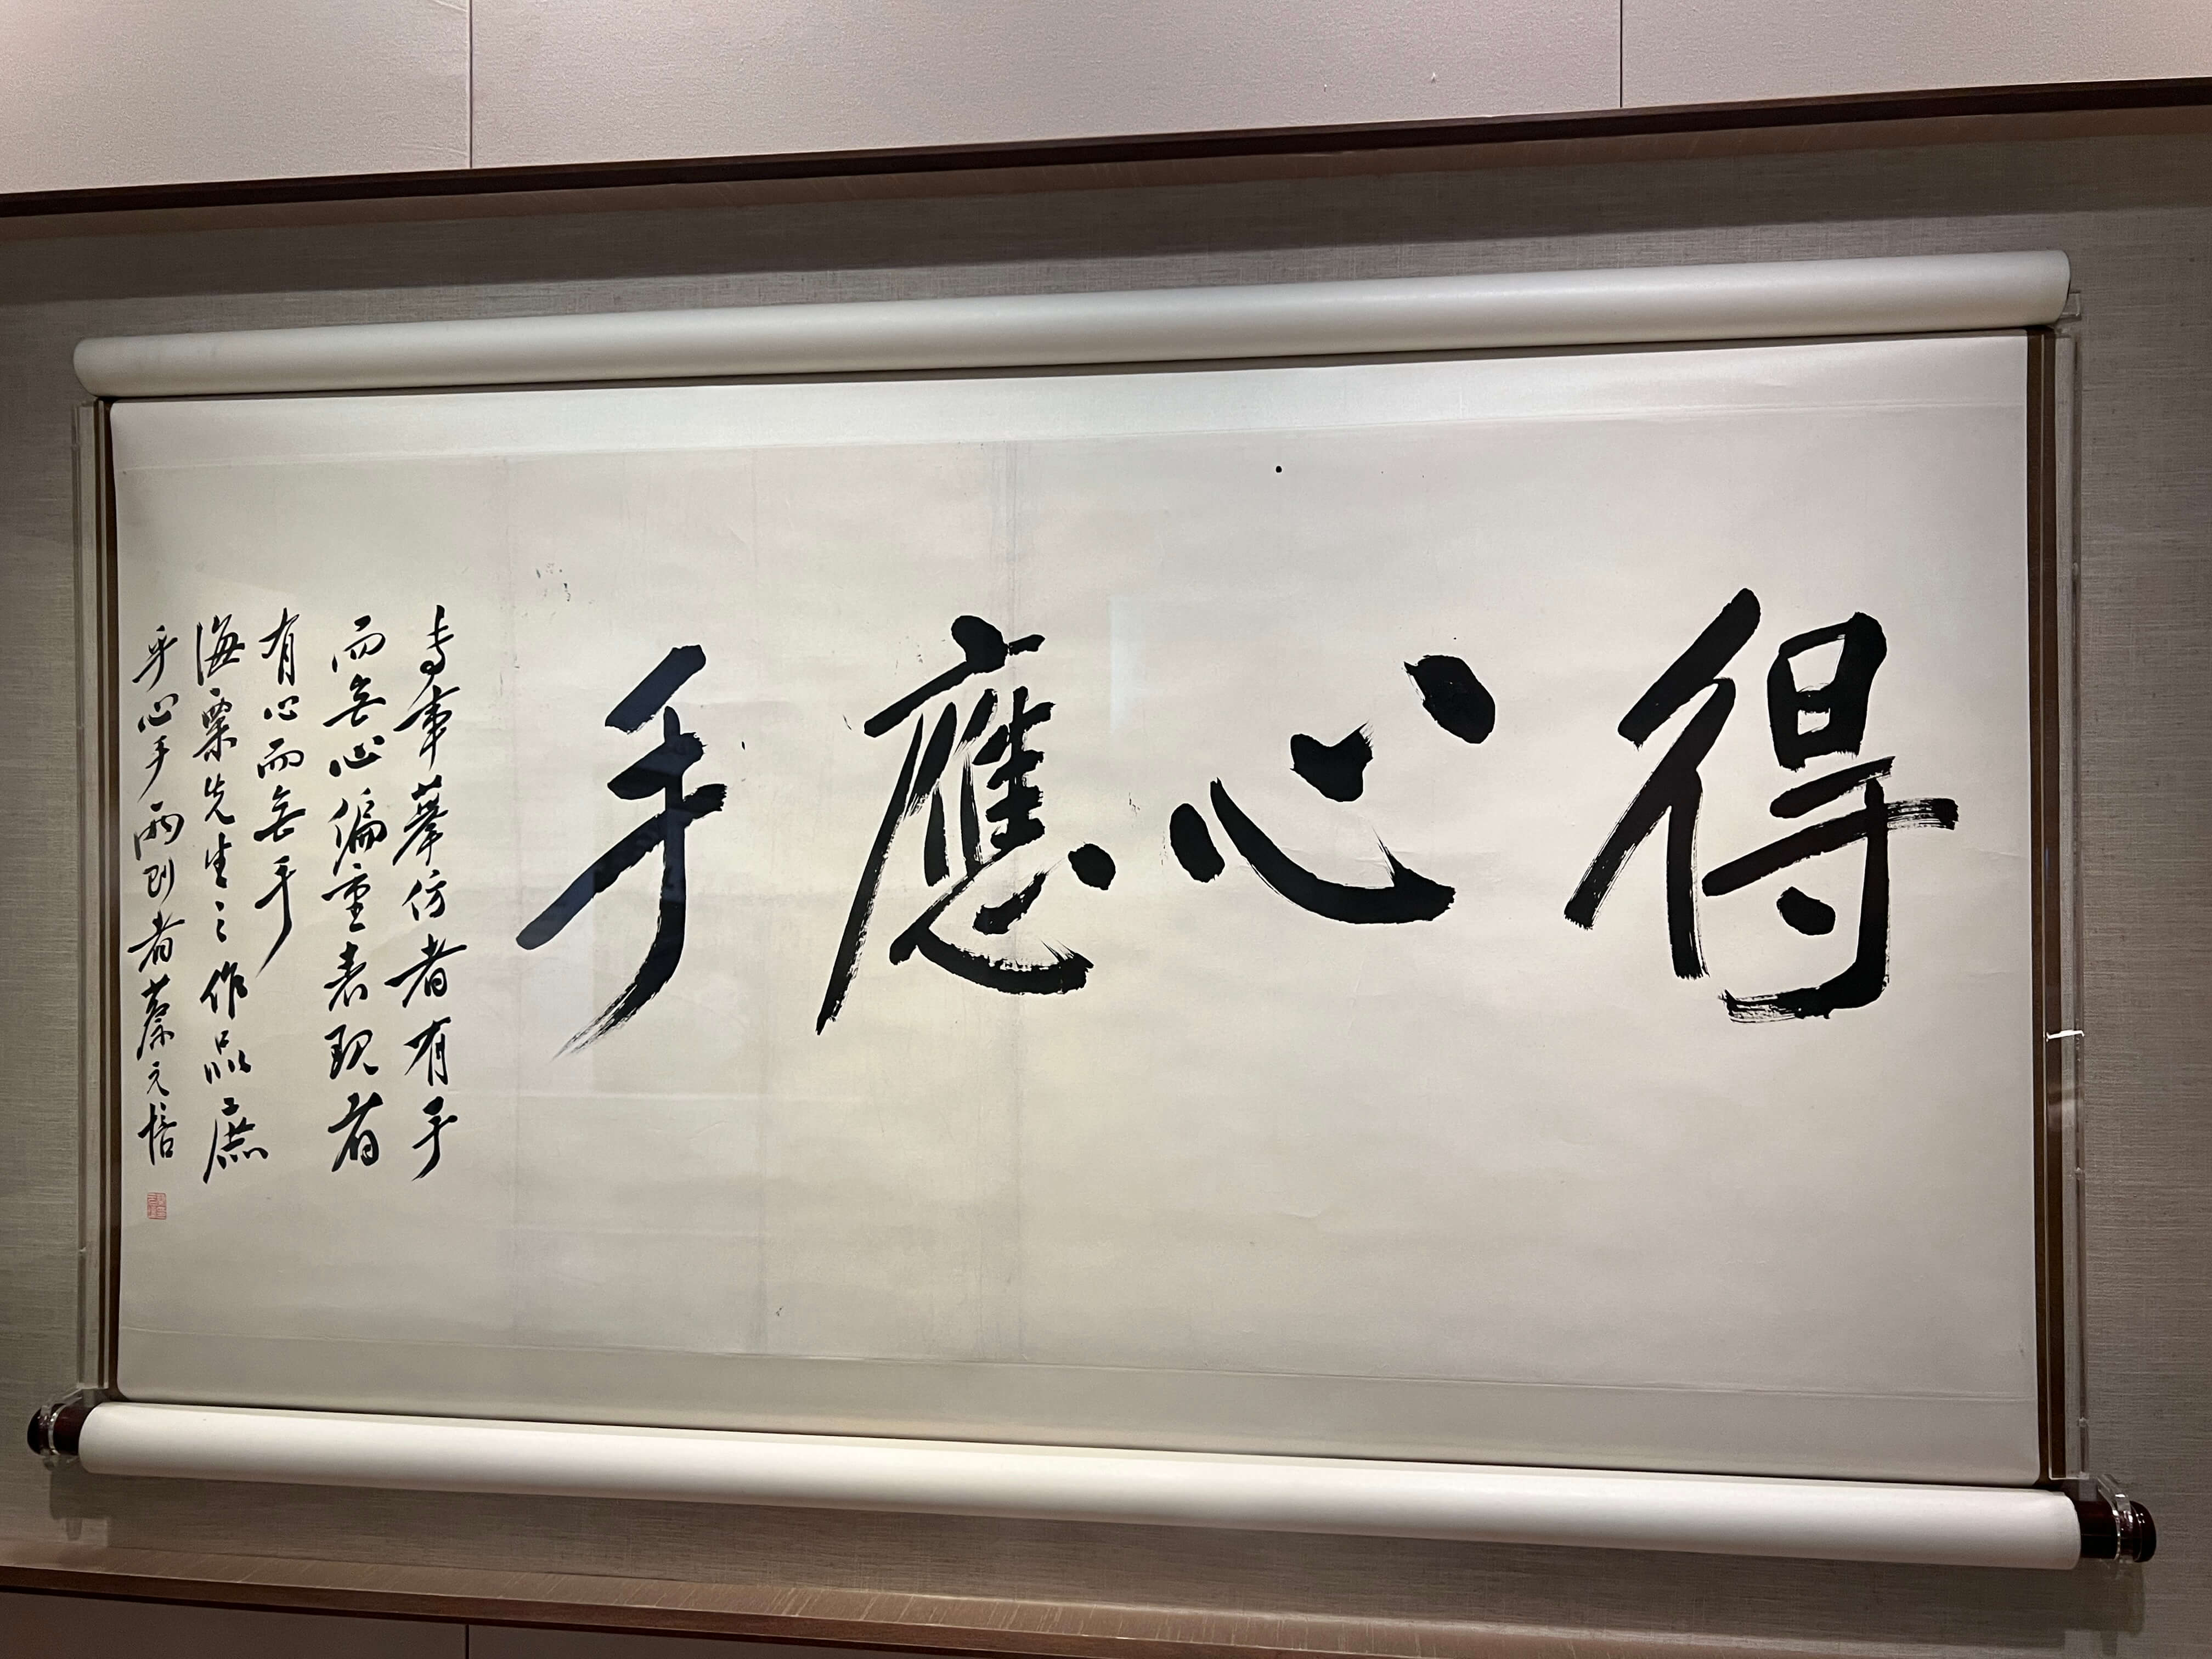 得心應手
專事摹仿者有手
而無心偏重表現者
有心而無手
海粟先生之作品庶
乎心手兩到者蔡元培